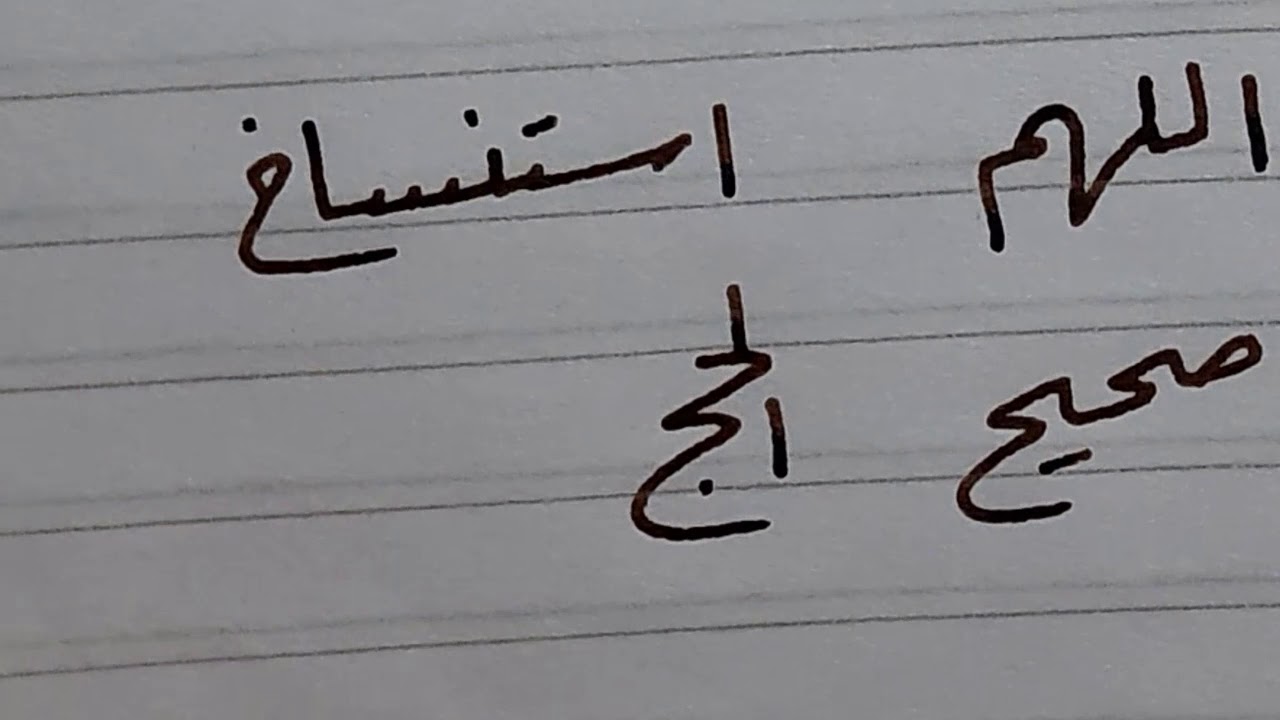 اللهم استنساخ
صحيح الحج